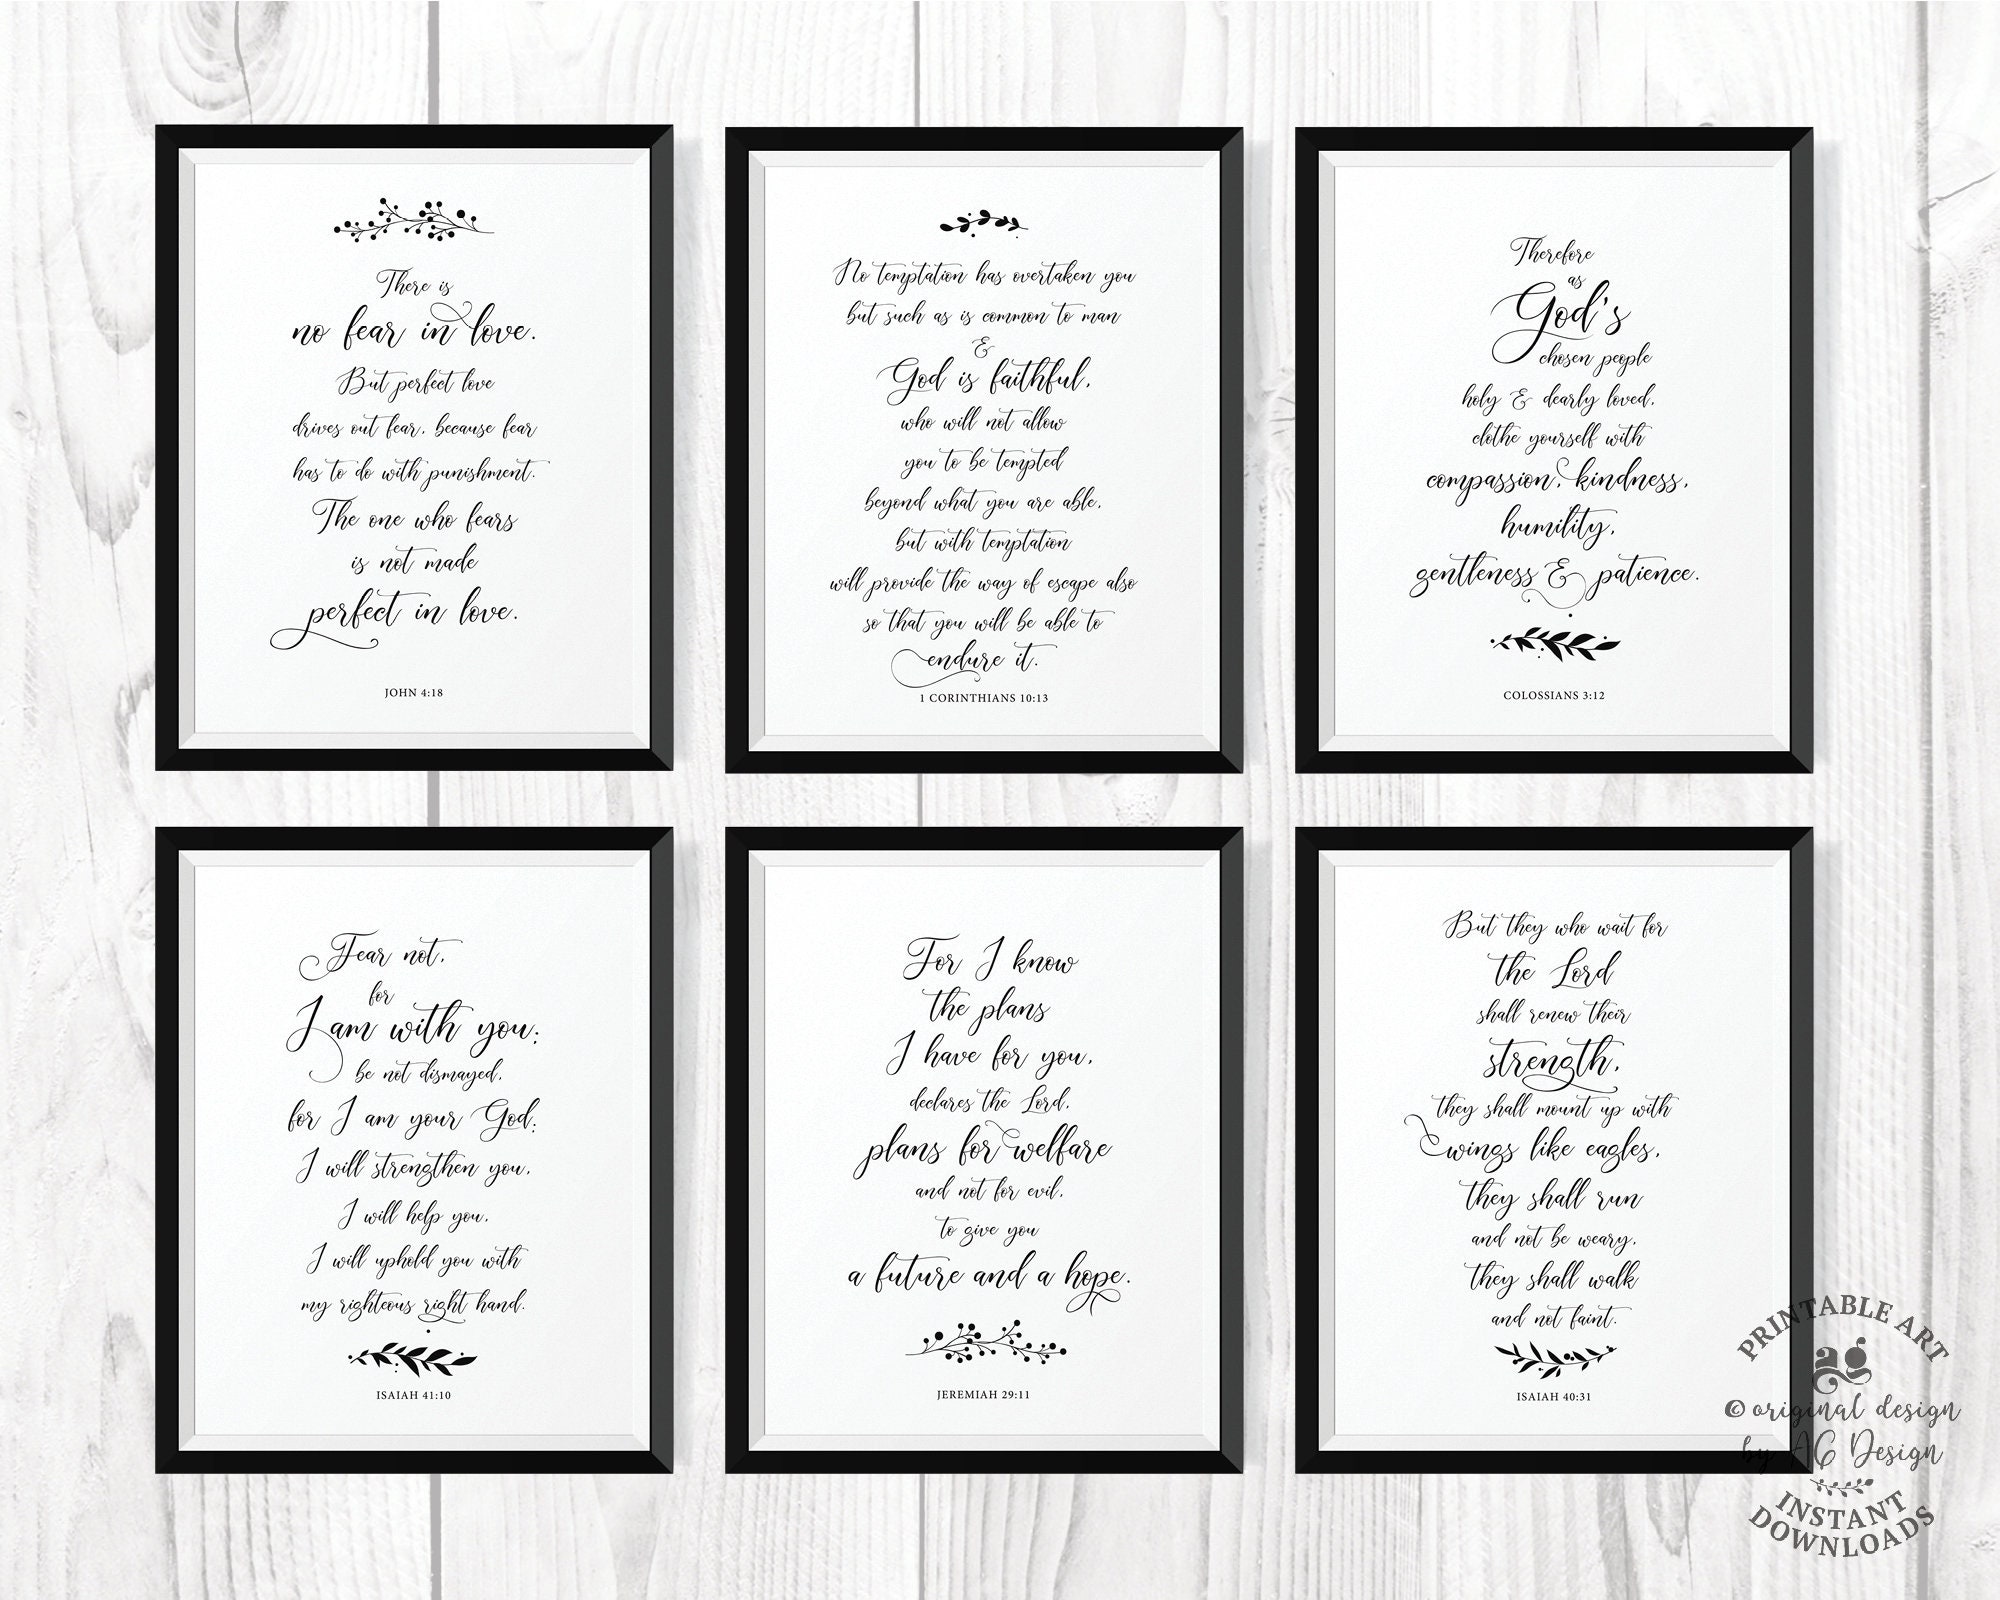 There is
no fear in love.
But perfect love
drives out fear, because fear
has to do with punishment.
The one who fears
is not made
perfect in love.
JOHN 4:18
No temptation has overtaken you
but such as is common to man
&
God is faithful,
who will not allow
you to be tempted
beyond what you are able,
but with temptation
will provide the way of escape also
so that you will be able to
endure it.
1 CORINTHIANS 10:13
Therefore
as
God's
chosen people
holy & dearly loved,
clothe yourself with
compassion, kindness,
humility,
gentleness & patience.
COLOSSIANS 3:12
Fear not,
for
I am with you;
be not dismayed,
for I am your God;
I will strengthen you,
I will help you,
I will uphold you with
my righteous right hand.
ISAIAH 41:10
For I know
the plans
I have for you,
declares the Lord,
plans for welfare
and not for evil,
to give you
a future and a hope.
JEREMIAH 29:11
But they who wait for
the Lord
shall renew their
strength,
they shall mount up with
wings like eagles,
they shall run
and not be weary,
they shall walk
and not faint.
ISAIAH 40:31
PRINTABLE ART
ag
© original design
by AG Design
INSTANT
DOWNLOADS